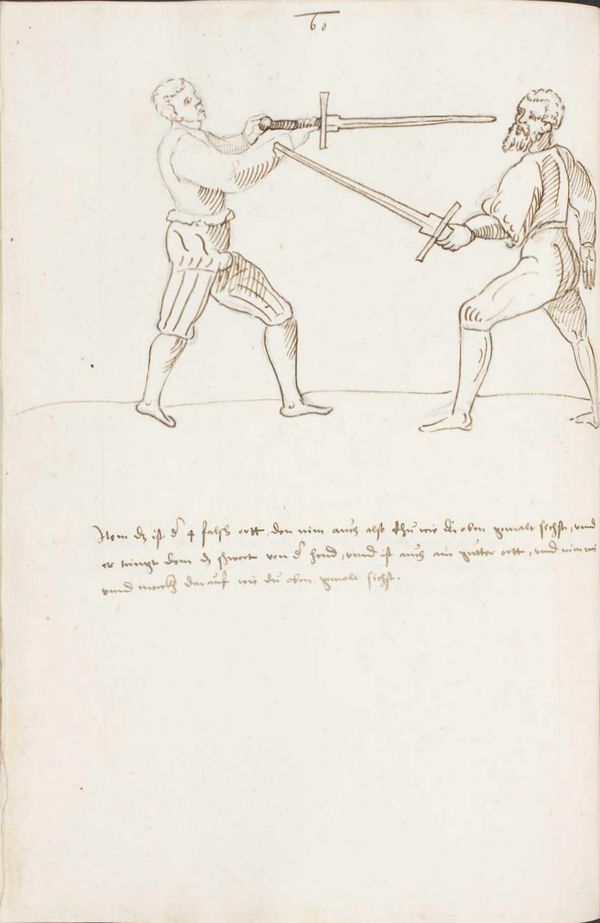 60
Item dz ist der 4 falsch ortt den nim auch also thu wie du oben gemalt sichst, vnd
er tringt dem dz schwert von der hend, vnnd ist auch ain gutter ortt, vnnd nim
vnnd merckh darauf wie du oben gemalt sichst.